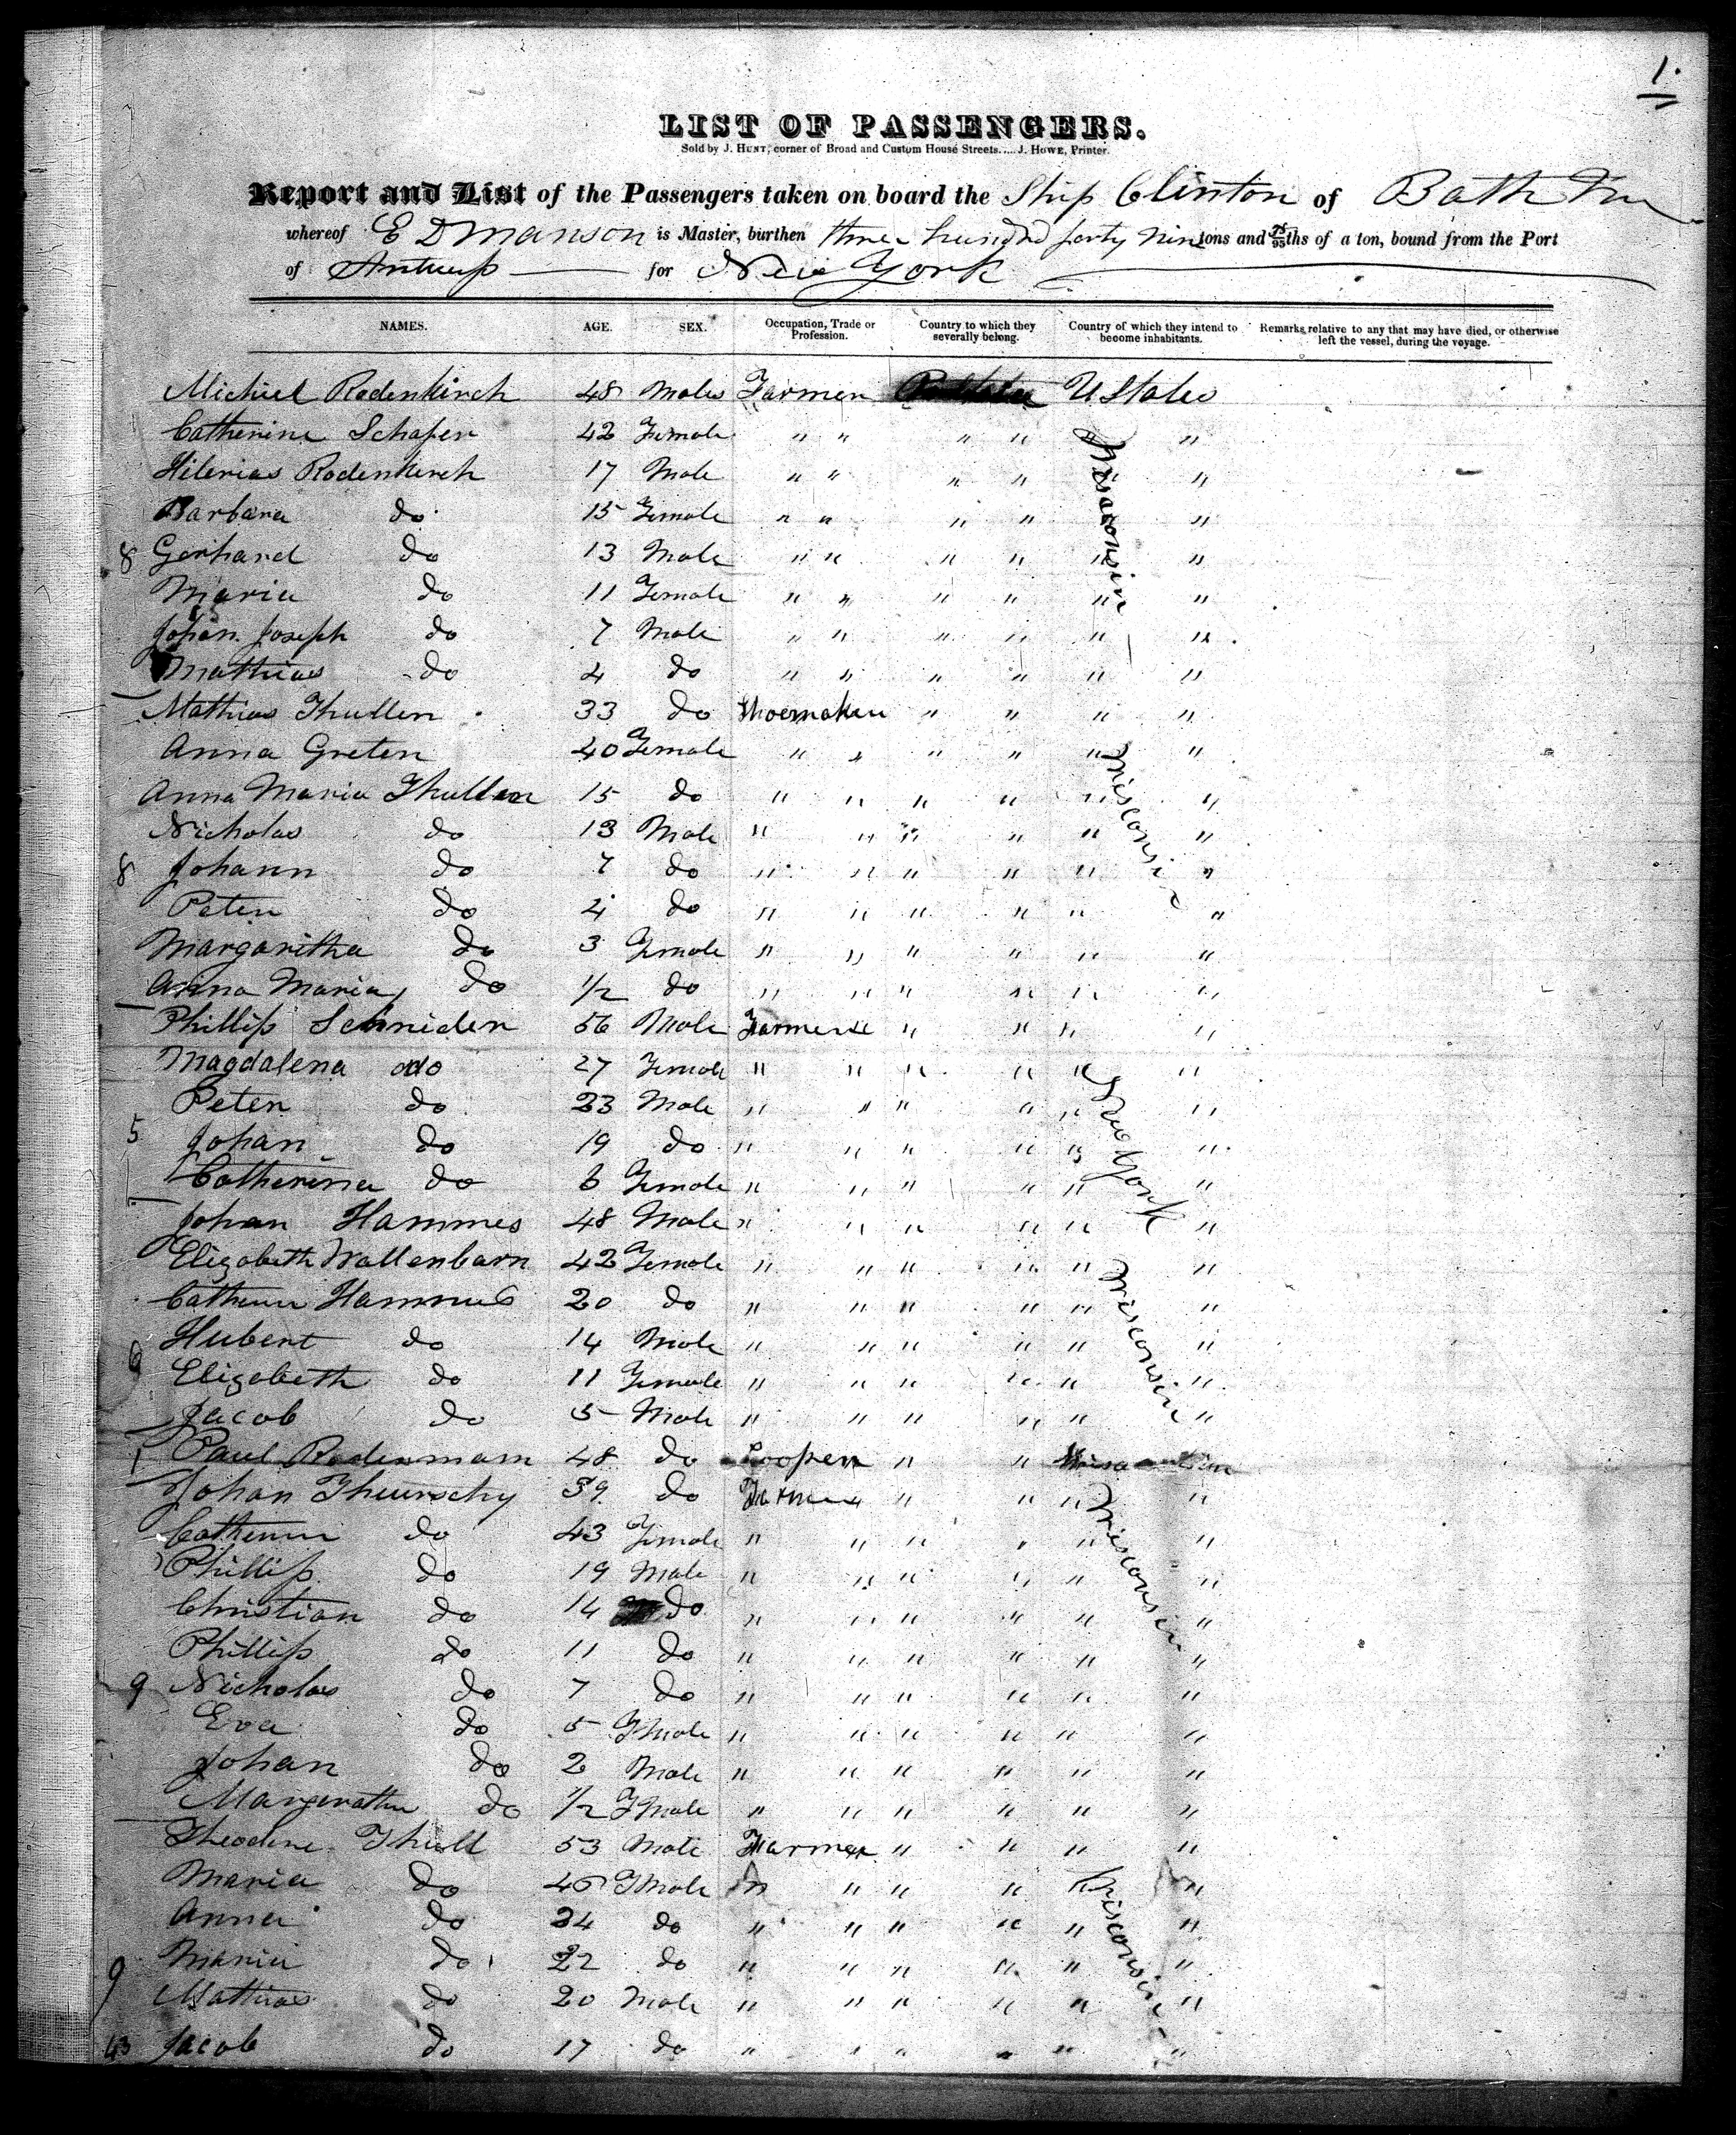 1.
LIST OF PASSENGERS.
Sold by J. HUNT, corner of Broad and Custom House Streets.....J. HOWE, Printer.
Report and List of the Passengers taken on board the Ship Clinton of Bath
whereof E D Manson is Master, burthen three hundred forty nine tons and 75/95ths of a ton, bound from the Port
of Antwerp for New York
NAMES. AGE. SEX. Occupation, Trade or Profession. Country to which they severally belong. Country of which they intend to become inhabitants. Remarks, relative to any that may have died, or otherwise left the vessel, during the voyage.
Michiel Rodenkirch 48 Males Farmer U States
Catherine Schafer 42 Female " " " " " "
Hilerias Rodenkirch 17 Male " " " " " "
Barbara do 15 Female " " " " " "
8 Gerhard do 13 Male " " " " " "
Maria do 11 Female " " " " " "
Johan Joseph do 7 Male " " " " " "
Mathias do 4 do " " " " " "
Wisconsin
Mathias Thullen 33 do Shoemaker " " " "
Anna Greten 40 Female " " " " " "
Anna Maria Thullen 15 do " " " " " "
Nicholas do 13 Male " " " " " "
8 Johann do 7 do " " " " " "
Peter do 4 do " " " " " "
Margaritha do 3 Female " " " " " "
Anna Maria do 1/2 do " " " " " "
Wisconsin
Phillip Schneider 56 Male Farmer " " " "
Magdalena do 27 Female " " " " " "
Peter do 23 Male " " " " " "
5 Johan do 19 do " " " " " "
Catherina do 6 Female " " " " " "
New York
Johan Hammes 48 Male " " " " " "
Elizabeth Wallenbarn 42 Female " " " " " "
Hammes 20 do " " " " " "
Hubert do 14 Male " " " " " "
6 Elizabeth do 11 Female " " " " " "
Jacob do 5 Male " " " " " "
Wisconsin
1 Paul Rodermam 48 do Cooper " " Wisconsin
Johan Theurschy 39 do Farmer " " " "
do 43 Female " " " " " "
Phillip do 19 Male " " " " " "
Christian do 14 do " " " " " "
Phillip do 11 do " " " " " "
9 Nicholas do 7 do " " " " " "
Eva do 5 Fmale " " " " " "
Johan do 2 Male " " " " " "
do 1/2 Fmale " " " " " "
Wisconsin
Theodore Thull 53 Male Farmer " " " "
Maria do 46 Fmale " " " " " "
Anna do 24 do " " " " " "
Maria do 22 do " " " " " "
9 Mathias do 20 Male " " " " " "
43 Jacob do 17 do " " " " " "
Wisconsin